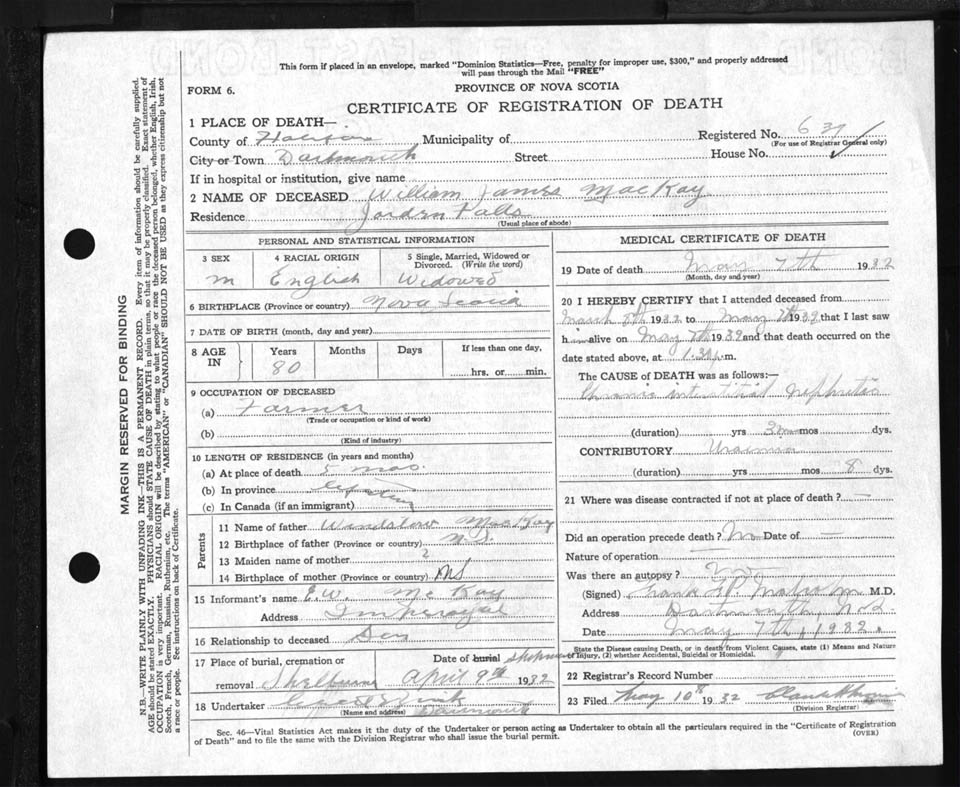 This form if placed in an envelope, marked "Dominion Statistics—Free, penalty for improper use, $300," and properly addressed
will pass through the Mail "FREE"
FORM 6.
PROVINCE OF NOVA SCOTIA
CERTIFICATE OF REGISTRATION OF DEATH
1 PLACE OF DEATH—
County of Halifax Municipality of Registered No. 631
(For use of Registrar General only)
City or Town Dartmouth Street House No.
If in hospital or institution, give name
2 NAME OF DECEASED William James MacKay
Residence Jorden Falls
(Usual place of abode)
PERSONAL AND STATISTICAL INFORMATION
3 SEX 4 RACIAL ORIGIN 5 Single, Married, Widowed or
Divorced. (Write the word)
m English Widowed
6 BIRTHPLACE (Province or country) Nova Scotia
7 DATE OF BIRTH (month, day and year)
8 AGE IN Years Months Days If less than one day,
80 hrs. or min.
9 OCCUPATION OF DECEASED
(a) Farmer
(Trade or occupation or kind of work)
(b)
(Kind of industry)
10 LENGTH OF RESIDENCE (in years and months)
(a) At place of death 5 mos.
(b) In province
(c) In Canada (if an immigrant)
Parents
11 Name of father Windslow MacKay
12 Birthplace of father (Province or country) N.S.
13 Maiden name of mother ?
14 Birthplace of mother (Province or country) NS
15 Informant's name E.W. McKay
Address Imperoyal
16 Relationship to deceased Son
17 Place of burial, cremation or Date of burial
removal Shelburne April 9th 1932
18 Undertaker
(Name and address) Dartmouth
MEDICAL CERTIFICATE OF DEATH
19 Date of death May 7th 1932
(Month, day and year)
20 I HEREBY CERTIFY that I attended deceased from
March 8th 1932 to May 7th 1932 that I last saw
him alive on May 7th 1932 and that death occurred on the
date stated above, at m.
The CAUSE of DEATH was as follows:—
Chronic interstitial Nephritis
(duration) yrs mos dys.
CONTRIBUTORY Uraemia
(duration) yrs mos 8 dys.
21 Where was disease contracted if not at place of death? —
Did an operation precede death? No Date of —
Nature of operation —
Was there an autopsy? No
(Signed) Frank M.D.
Address Dartmouth, N.S.
Date May 7th, 1932.
State the Disease causing Death, or in death from Violent Causes, state (1) Means and Nature
of Injury, (2) whether Accidental, Suicidal or Homicidal.
22 Registrar's Record No.
23 Filed May 10th 1932
(Division Registrar)
Sec. 46—Vital Statistics Act makes it the duty of the Undertaker or person acting as Undertaker to obtain all the particulars required in the "Certificate of Registration
of Death" and to file the same with the Division Registrar who shall issue the burial permit.
(OVER)
MARGIN RESERVED FOR BINDING
N.B.—WRITE PLAINLY WITH UNFADING INK—THIS IS A PERMANENT RECORD. Every item of information should be carefully supplied.
AGE should be stated EXACTLY. PHYSICIANS should STATE CAUSE OF DEATH in plain terms, so that it may be properly classified. Exact statement of
OCCUPATION is very important. RACIAL ORIGIN will be described by stating to what people or race the deceased person belonged, whether English, Irish,
Scotch, French, German, Russian, Ruthenian, etc. The terms "AMERICAN" or "CANADIAN" SHOULD NOT BE USED as they express citizenship but not
a race or people. See instructions on back of Certificate.